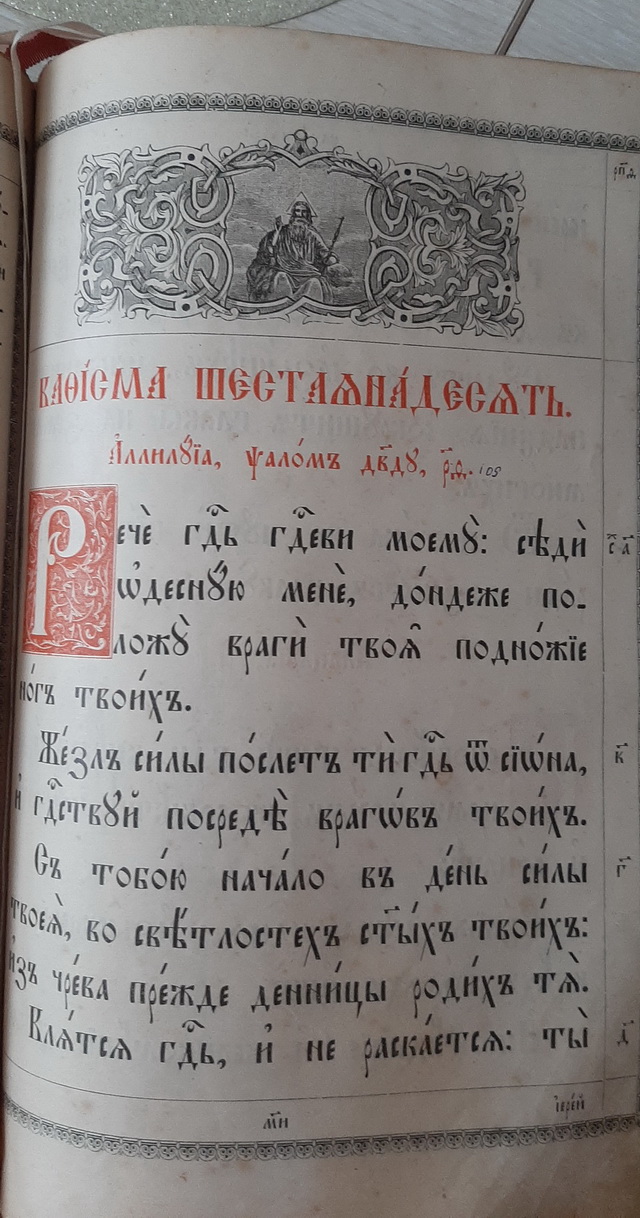 рп҃д
КАѲІ́СМА ШЕСТАЯНА́ДЕСѦТЬ.
А҆ллилꙋ́їа, ѱало́мъ дв҃дꙋ, р҃ѳ. 109
Речѐ гдⷭ҇ь гдⷭ҇еви моемꙋ̀: сѣдѝ
ѡ҆деснꙋ́ю менѐ, до́ндеже по-
ложꙋ̀ врагѝ твоѧ̑ подно́жїе
но́гъ твои́хъ.
Же́злъ си́лы по́слетъ тѝ гдⷭ҇ь ѿ сїѡ́на,
и҆ гдⷭ҇ствꙋй посредѣ̀ врагѡ́въ твои́хъ.
Съ тобо́ю нача́ло въ де́нь си́лы
твоеѧ̀, во свѣ́тлостехъ ст҃ы́хъ твои́хъ:
и҆зъ чре́ва пре́жде денни́цы роди́хъ тѧ̀.
Клѧ́тсѧ гдⷭ҇ь, и҆ не раска́етсѧ: ты̀
с҃ а҃
к҃
г҃
д҃
і҆ере́й